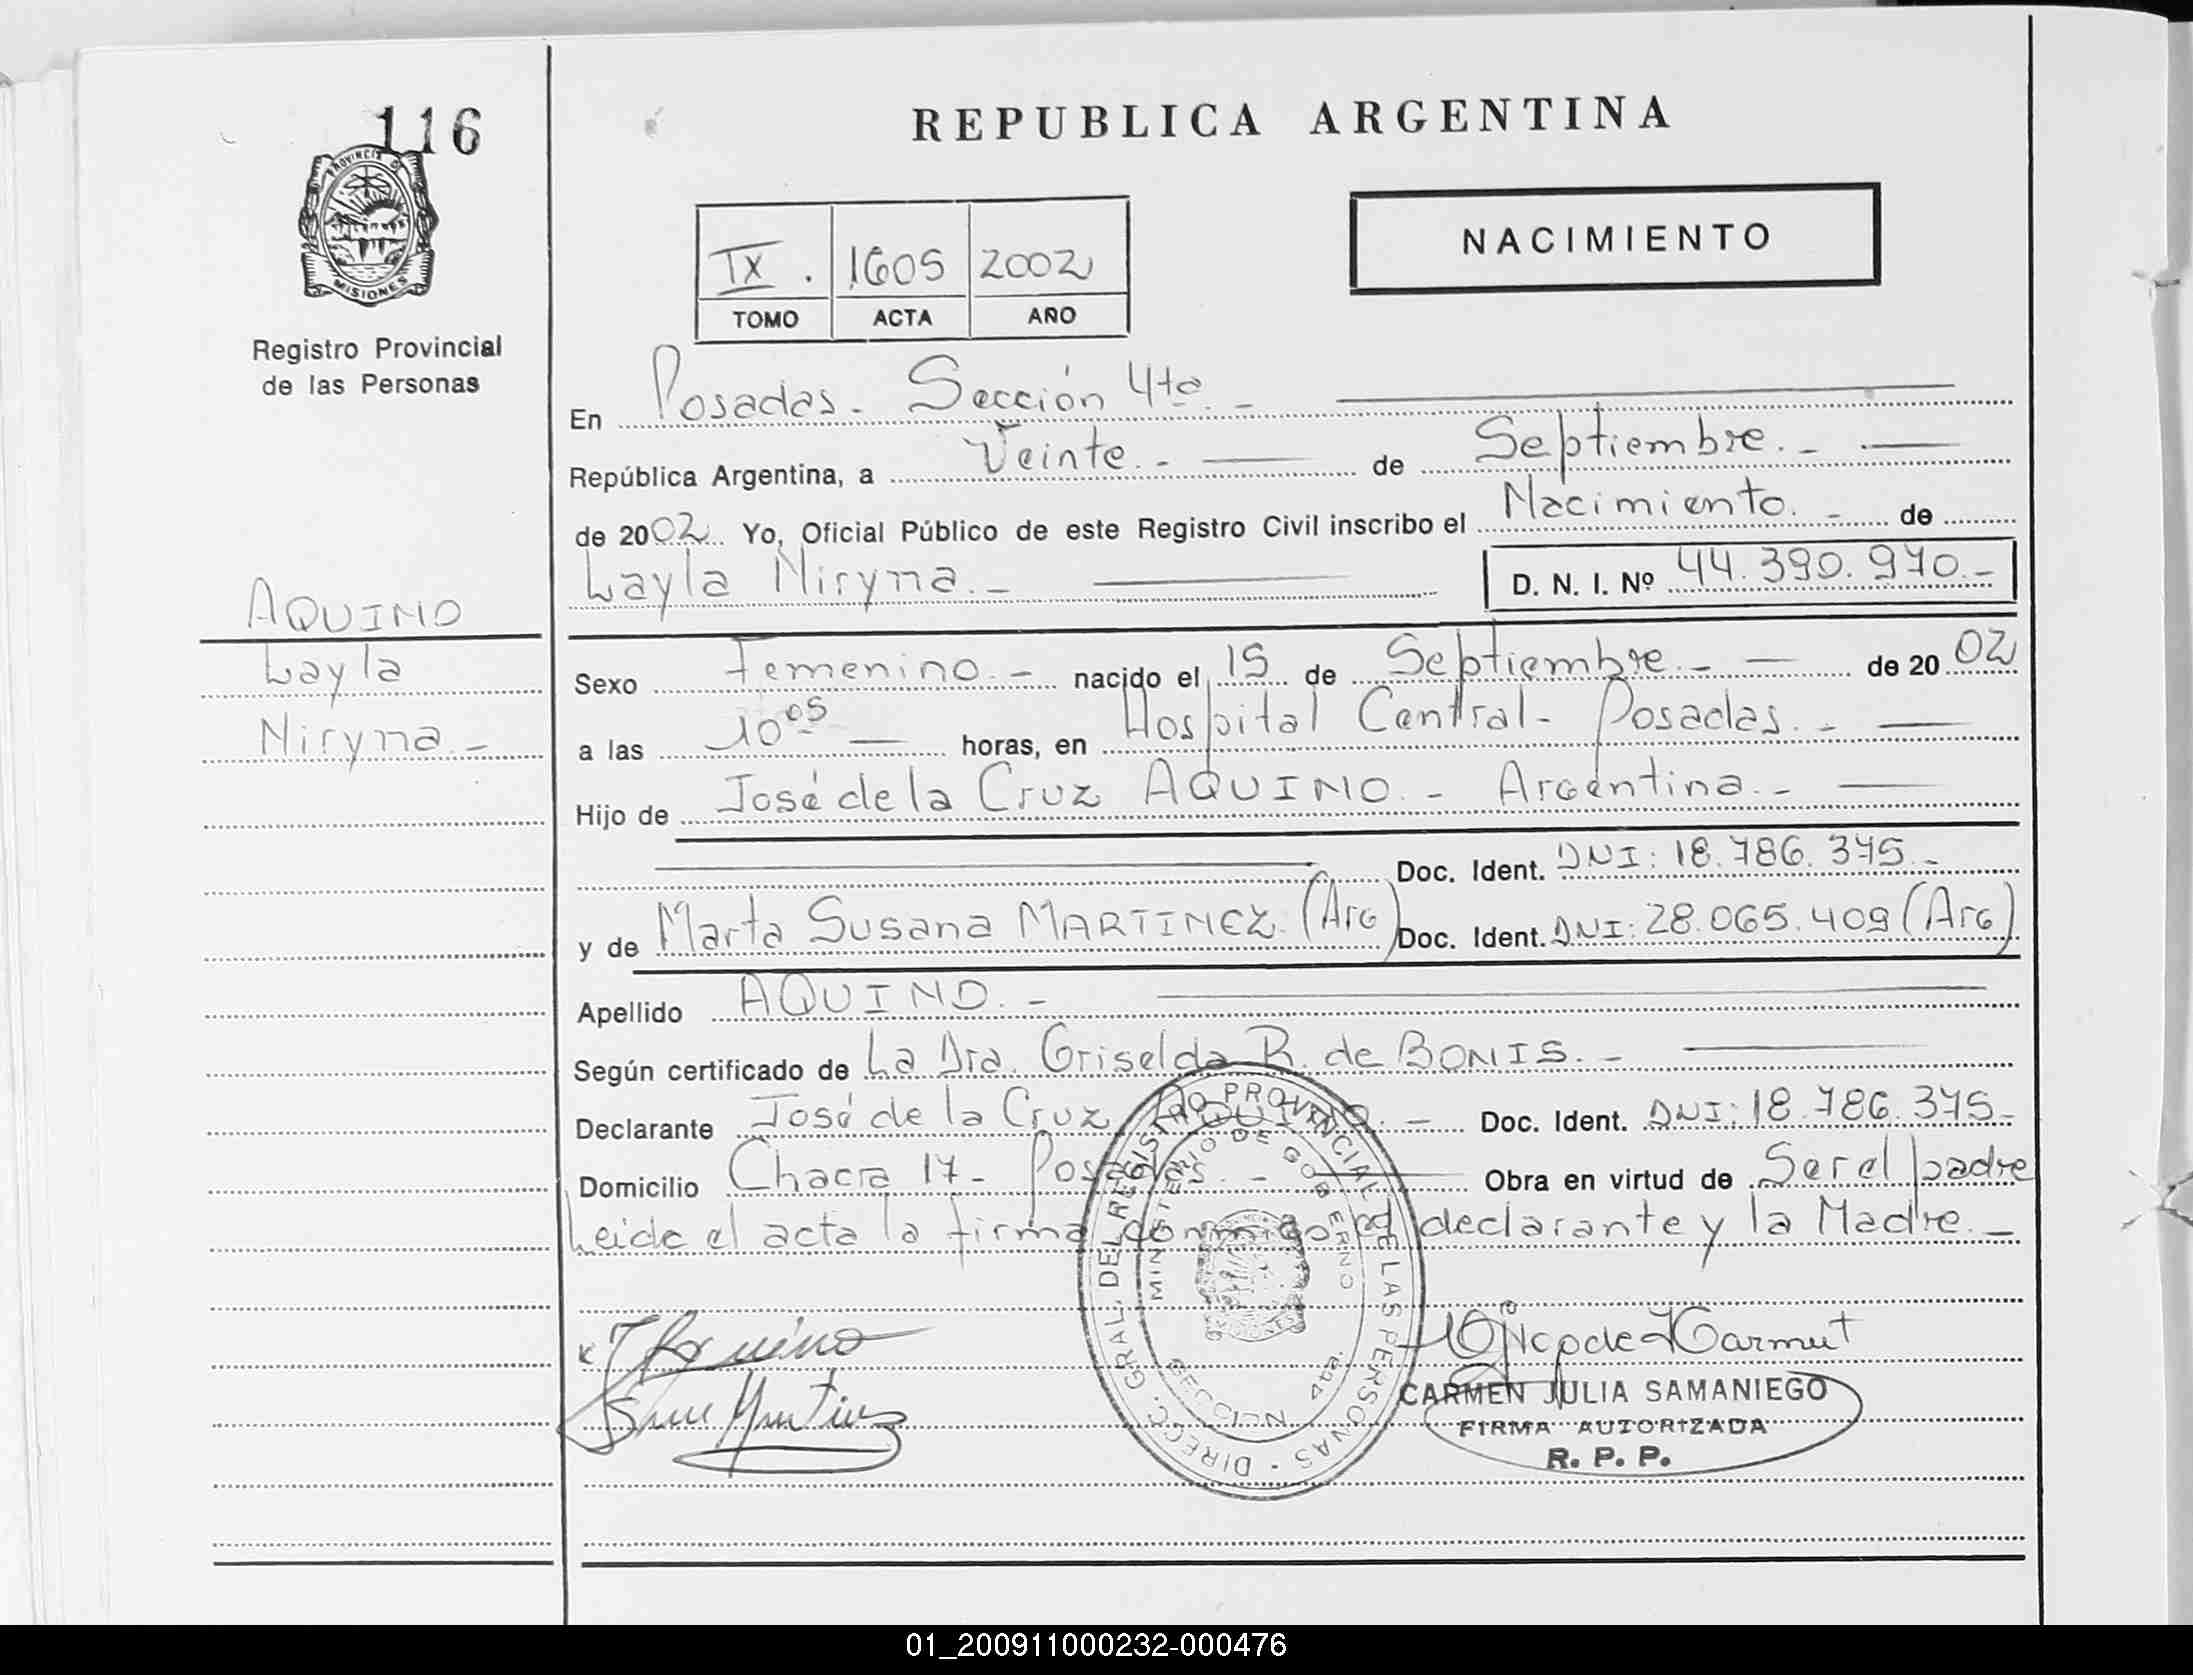 116
REPUBLICA ARGENTINA
PROVINCIA D
MISIONES
Registro Provincial
de las Personas
NACIMIENTO
IX. 1605 2002
TOMO ACTA AÑO
En Posadas. Sección 4ta. -
República Argentina, a Veinte. - de Septiembre. -
de 2002 Yo, Oficial Público de este Registro Civil inscribo el Nacimiento. - de
Layla Niryna. - D. N. I. Nº 44.390.970.-
AQUINO
Layla
Niryna. -
Sexo Femenino. - nacido el 15 de Septiembre. - de 20 02
a las 10 05 horas, en Hospital Central - Posadas. -
Hijo de José de la Cruz AQUINO. - Argentina. -
Doc. Ident. DNI: 18.786.375. -
y de Marta Susana MARTINEZ. (Arg) Doc. Ident. DNI: 28.065.409 (Arg)
Apellido AQUINO. -
Según certificado de La Dra. Griselda R. de BONIS. -
Declarante José de la Cruz AQUINO. - Doc. Ident. DNI: 18.786.375-
Domicilio Chacra 17 - Posadas. - Obra en virtud de Ser el padre
Leida el acta la firma conmigo el declarante y la Madre. -
DIRECC. GRAL. DEL REGISTRO PROVINCIAL DE LAS PERSONAS
MINISTERIO DE GOBIERNO
SECCION 4ta.
CARMEN JULIA SAMANIEGO
FIRMA AUTORIZADA
R. P. P.
01_200911000232-000476